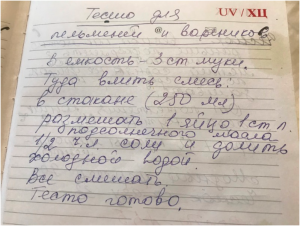 Тесто для
UV / ХЦ
пельменей и вареников
В емкость - 3 ст муки.
Туда влить смесь:
в стакане (250 мл)
размешать 1 яйцо 1 ст л.
подсолнечного масла
1/2 ч.л соли и долить
холодной водой.
Все смешать.
Тесто готово.